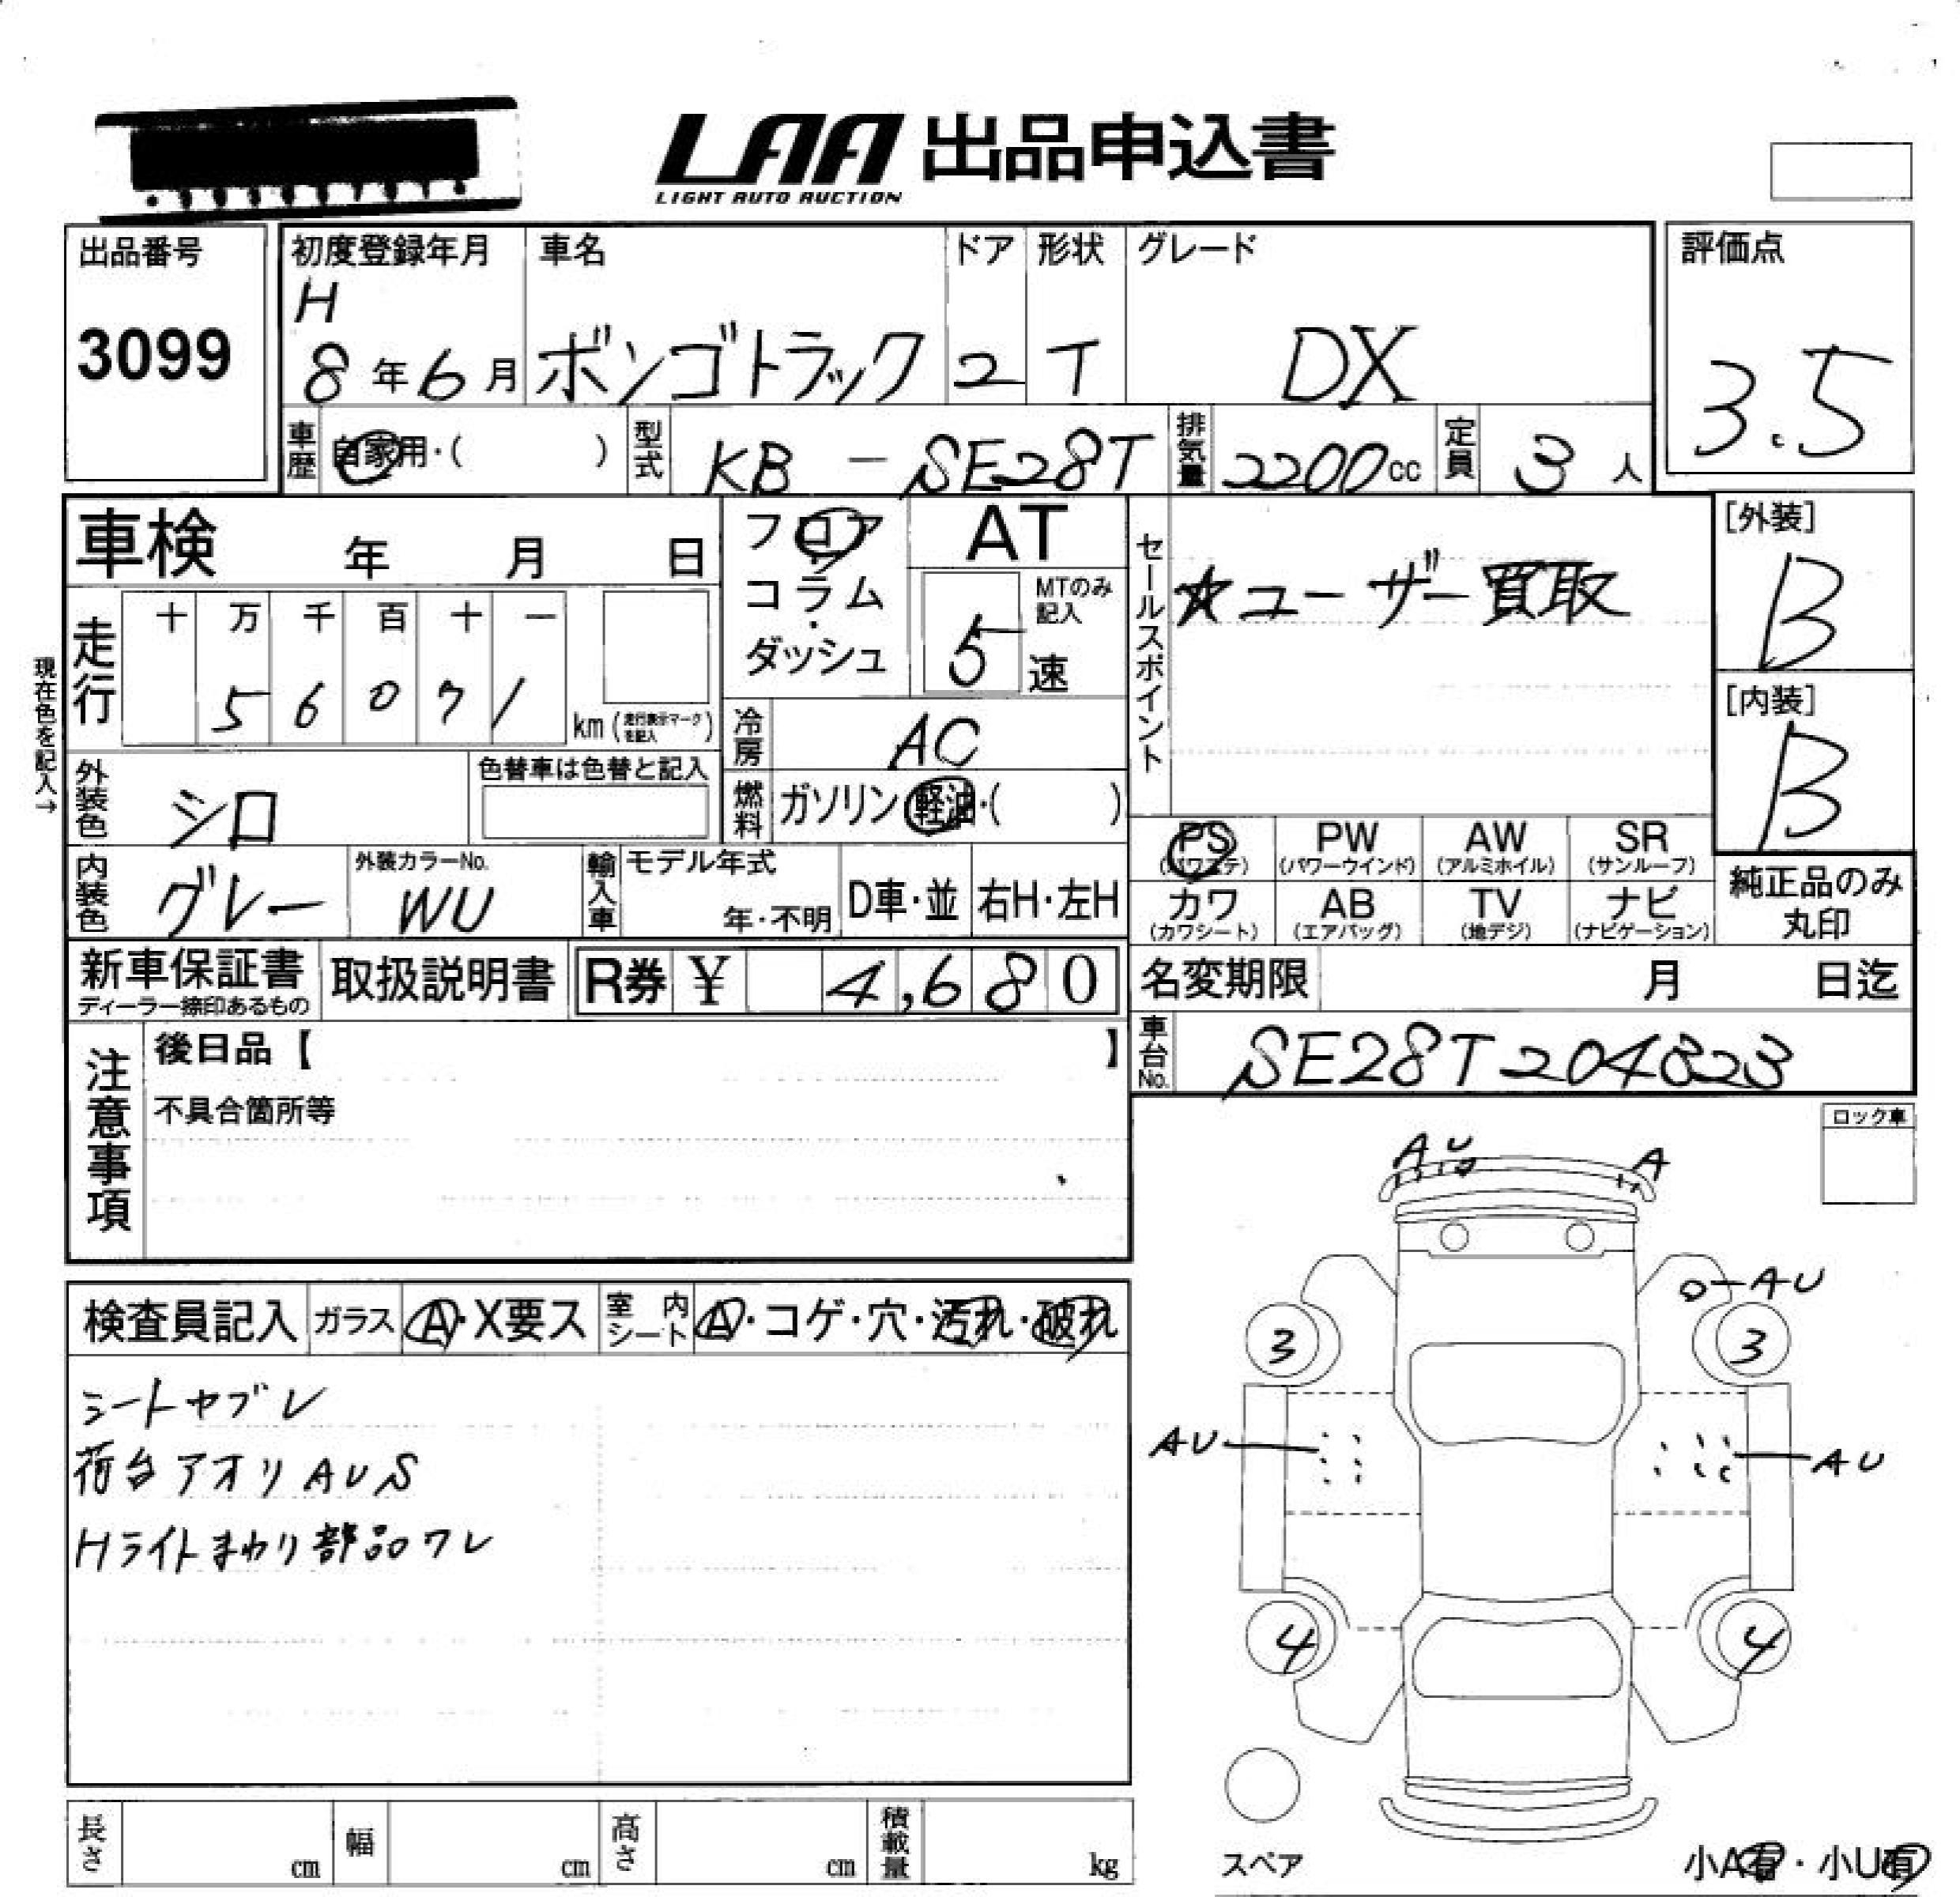 LAA 出品申込書
LIGHT AUTO AUCTION
出品番号
3099
初度登録年月
H
8年6月
車名
ボンゴトラック
ドア
2
形状
T
グレード
DX
評価点
3.5
車歴
自家用・( )
型式
KB-SE28T
排気量
2200cc
定員
3人
車検 年 月 日
フロア
コラム
・
ダッシュ
AT
MTのみ
記入
5速
セールスポイント
★ユーザー買取
[外装]
B
[内装]
B
現在色を記入→
走行
十 万 千 百 十 一
5 6 0 7 1
km(走行表示マークを記入)
冷房
AC
燃料
ガソリン・軽油・( )
外装色
シロ
色替車は色替と記入
内装色
グレー
外装カラーNo.
WU
輸入車
モデル年式
年・不明
D車・並
右H・左H
PS
(パワステ)
PW
(パワーウインド)
AW
(アルミホイル)
SR
(サンルーフ)
カワ
(カワシート)
AB
(エアバッグ)
TV
(地デジ)
ナビ
(ナビゲーション)
純正品のみ
丸印
新車保証書
ディーラー捺印あるもの
取扱説明書
R券 ¥ 4,680
名変期限 月 日迄
車台No.
SE28T204823
注意事項
後日品【 】
不具合箇所等
ロック車
A U
A
AU
3
3
AU
AU
4
4
検査員記入
ガラス
A・X要ス
室内
シート
A・コゲ・穴・汚れ・破れ
シートヤブレ
荷台アオリAUS
Hライトまわり部品ワレ
長さ cm
幅 cm
高さ cm
積載量 kg
スペア
小A有・小U有